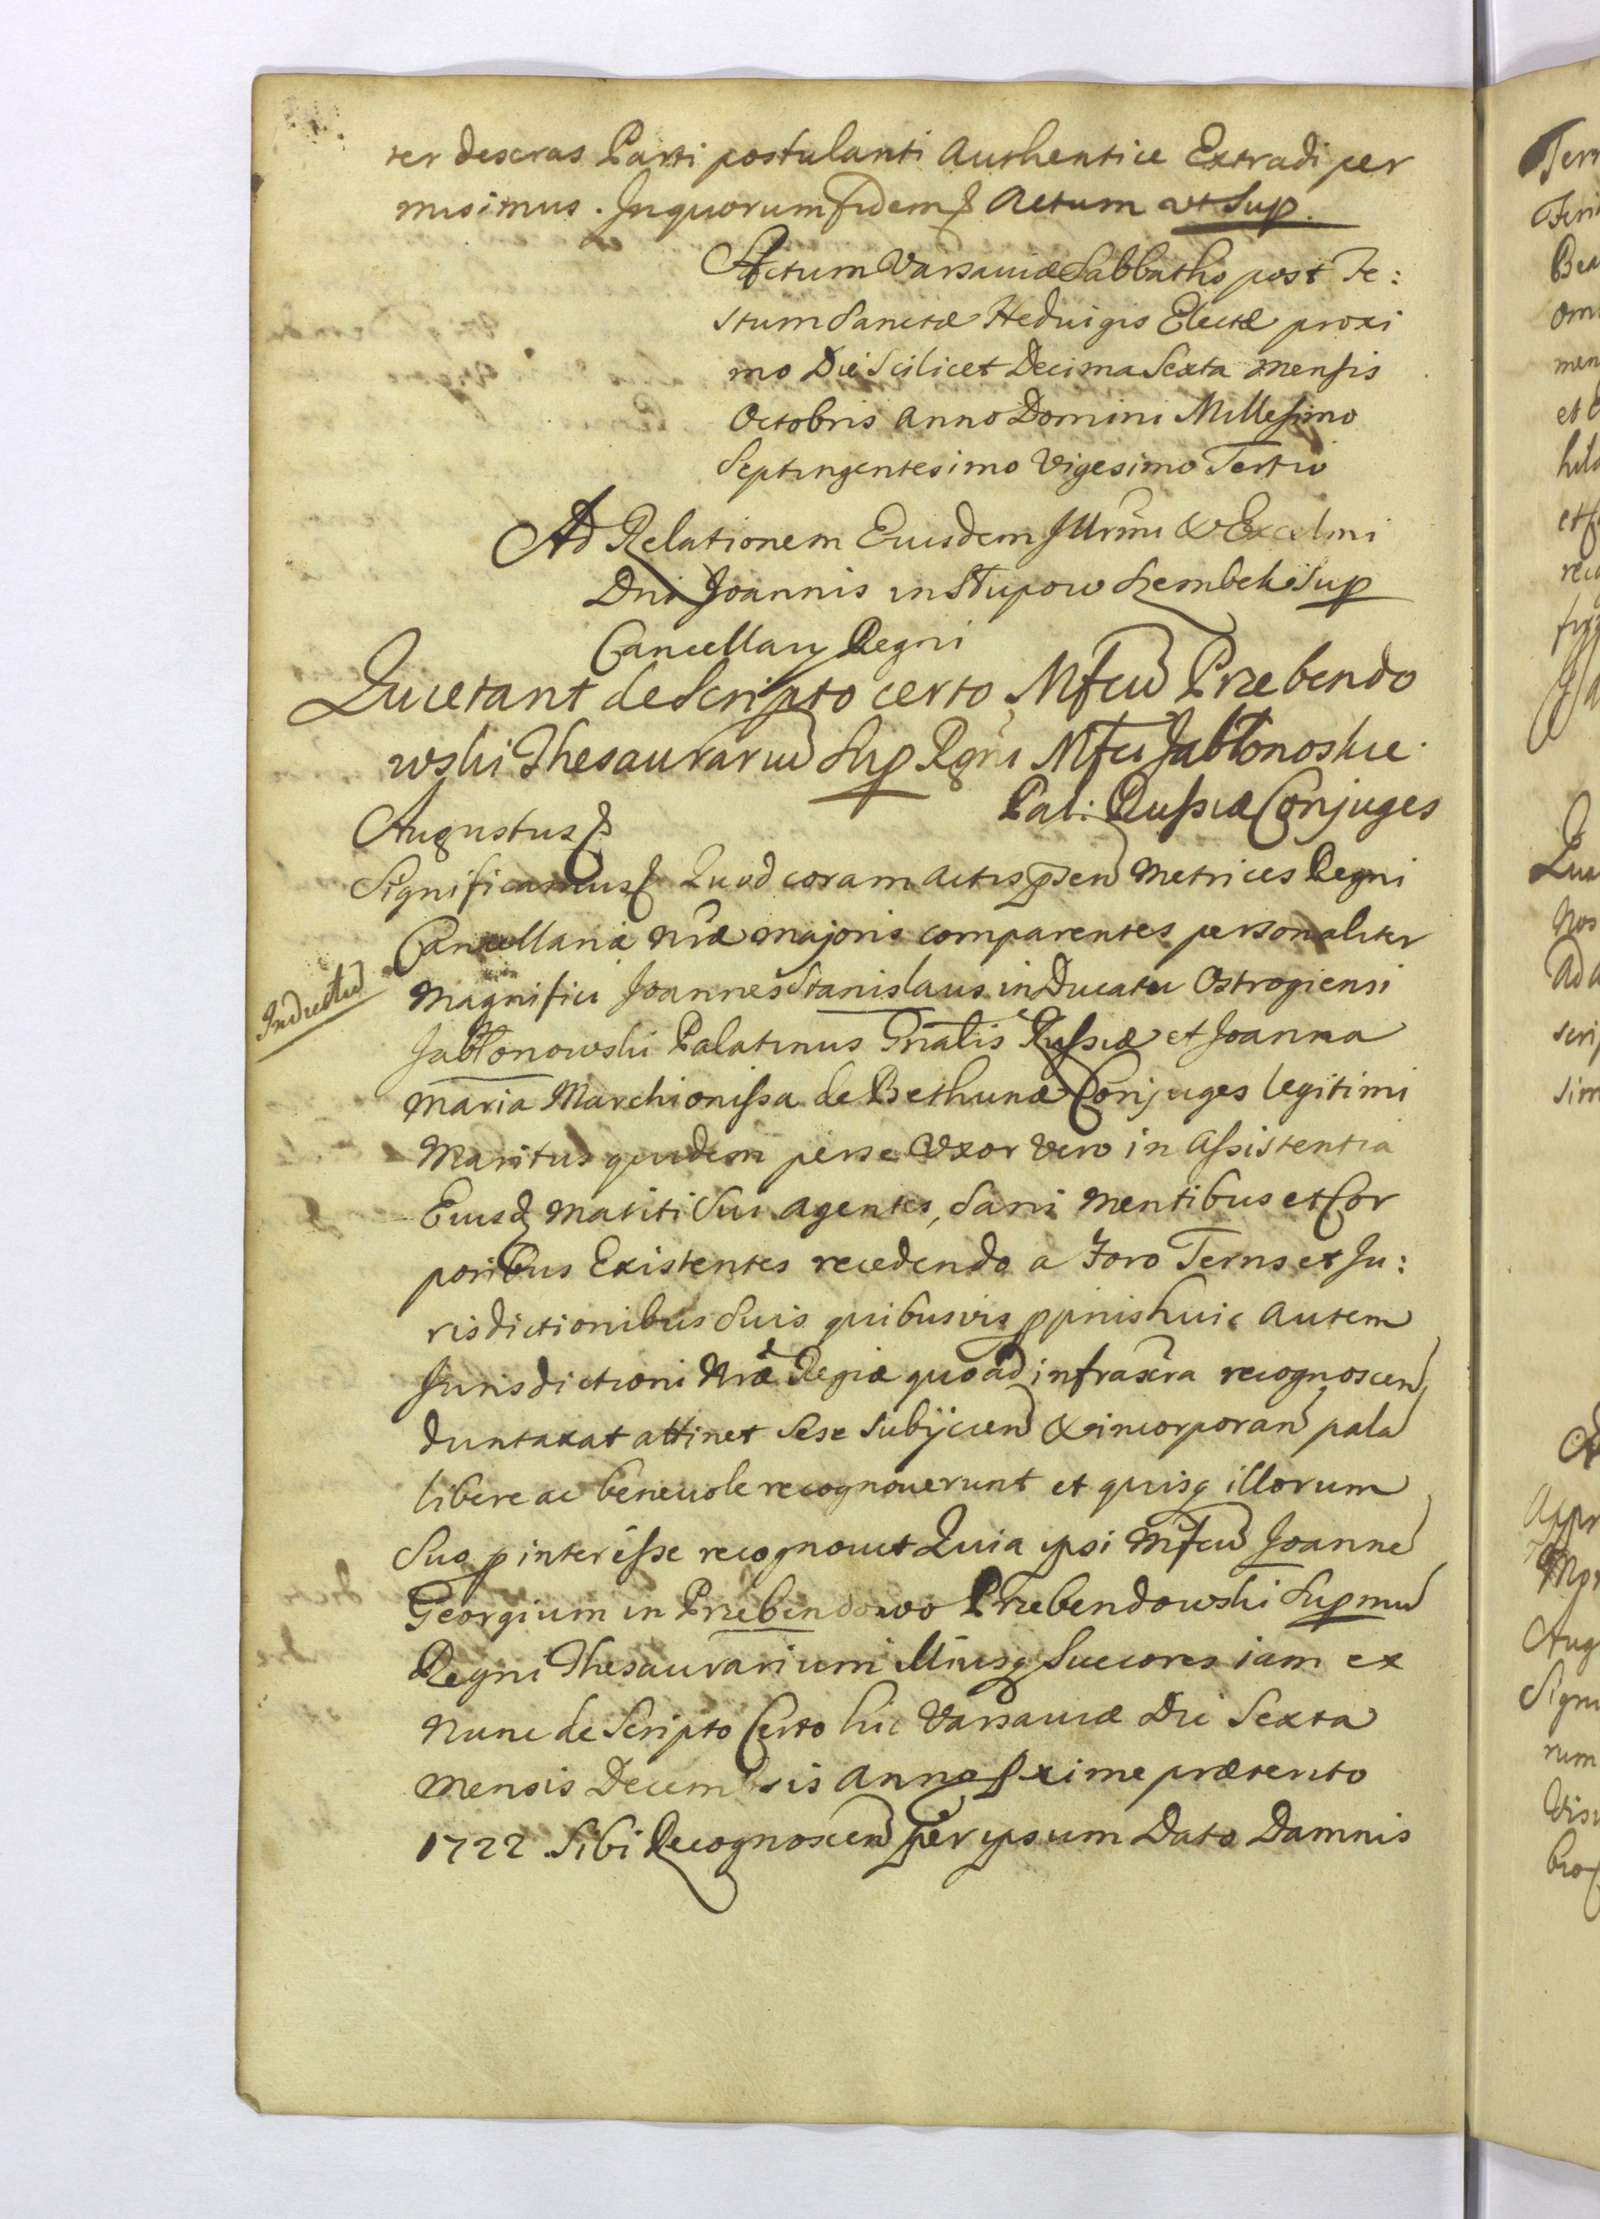 ter descras Parti postulanti Authentice Extradi per
misimus. In quorum fidem Actum ut Sup.
Actum Varsaviæ Sabbatho post Fe:
stum Sanctæ Heduigis Electæ proxi
mo Die Scilicet Decima Sexta Mensis
Octobris Anno Domini Millesimo
Septingentesimo Vigesimo Tertio
Ad Relationem Eiusdem Illrmi & Excelmi
Dni Joannis in Stupow Szembek Sup
Cancellarij Regni
Quietant de Scripto certo Mfcu Przebendo
wski Thesaurariu Sup Rgni Mfci Jabłonoskie
Pal: Russiæ Conjuges
Augustus
Significamus Quod coram actis psen Metrices Regni
Cancellariæ nræ majoris comparentes personaliter
Inductu
Magnifici Joannes Stanislaus in Ducatu Ostrogiensi
Jabłonowski Palatinus Gnalis Russiæ et Joanna
Maria Marchionissa de Bethunæ Conjuges legitimi
Maritus quidem per se Uxor vero in Assistentia
Eiusd Mariti Sui agentes, Sani Mentibus et Cor
poribus Existentes recedendo a Foro Terns et Ju:
risdictionibus Suis quibusvis ppriis huic autem
Jurisdictioni Nræ Regiæ quoad infrascra recognoscen
duntaxat attinet Sese Subijcien & incorporan pala
libere ac benevole recognoverunt et quisq illorum
Suo p interesse recognovit Quia ipsi Mfcu Joanne
Georgium in Przebendowo Przebendowski Supmu
Regni Thesaurarium Illiusq Succores iam ex
Nunc de Scripto Certo hic Varsaviæ Die Sexta
Mensis Decembris Anno pxime præterito
1722 Sibi Recognoscen per ipsum Dato Damnis